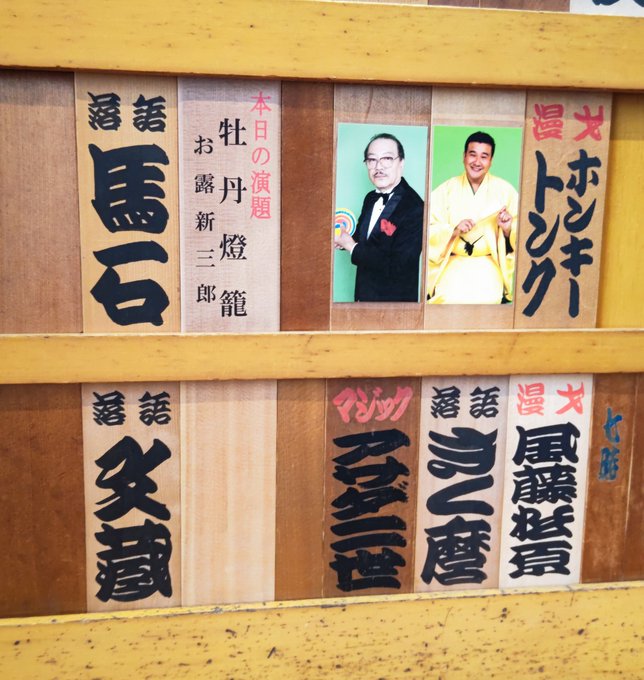 漫才
ホンキー
トンク
本日の演題
牡丹燈籠
お露新三郎
落語
馬石
漫才
風藤松原
落語
きく麿
マジック
アサダ二世
落語
文蔵